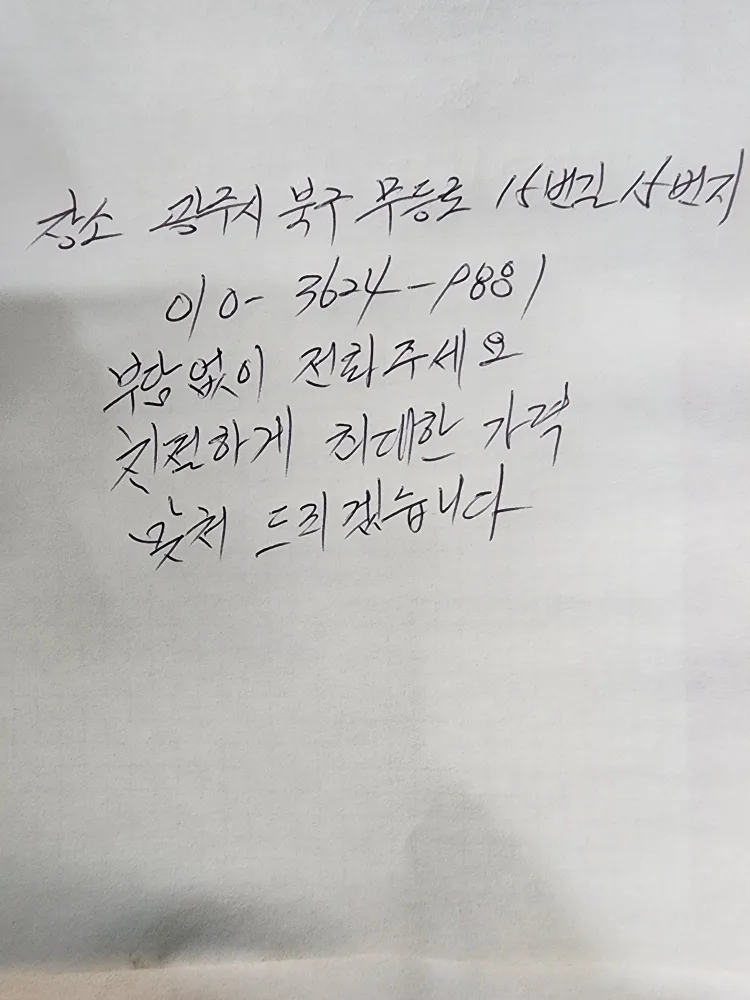 장소 광주시 북구 무등로 15번길 15번지
010-3624-9881
부담없이 전화주세요
친절하게 최대한 가격
맞처 드리겠습니다